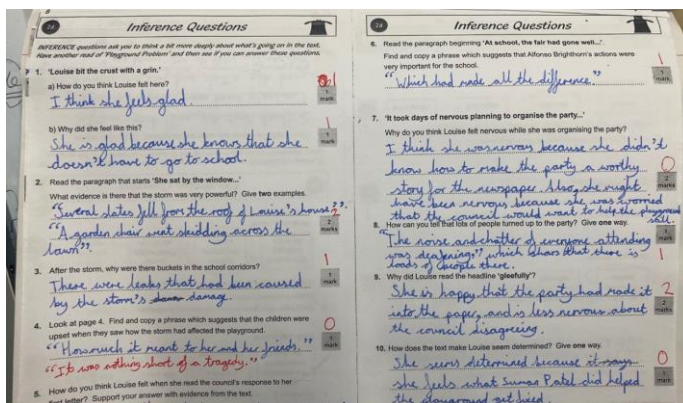 2a
Inference Questions
INFERENCE questions ask you to think a bit more deeply about what's going on in the text.
Have another read of 'Playground Problem' and then see if you can answer these questions.
1. 'Louise bit the crust with a grin.'
a) How do you think Louise felt here?
I think she feels glad.
1
1
mark
b) Why did she feel like this?
She is glad because she knows that she
doesn't have to go to school.
1
1
mark
2. Read the paragraph that starts 'She sat by the window...'
What evidence is there that the storm was very powerful? Give two examples.
"Several slates fell from the roof of Louise's house".
"A garden chair went skidding across the
lawn".
2
2
marks
3. After the storm, why were there buckets in the school corridors?
There were leaks that had been caused
by the storm's damage.
1
1
mark
4. Look at page 4. Find and copy a phrase which suggests that the children were
upset when they saw how the storm had affected the playground.
"How much it meant to her and her friends."
"It was nothing short of a tragedy."
0
1
mark
5. How do you think Louise felt when she read the council's response to her
first letter? Support your answer with evidence from the text.
2a
Inference Questions
6. Read the paragraph beginning 'At school, the fair had gone well...'.
Find and copy a phrase which suggests that Alfonso Brighthorn's actions were
very important for the school.
"Which had made all the difference."
1
1
mark
7. 'It took days of nervous planning to organise the party...'
Why do you think Louise felt nervous while she was organising the party?
I think she was nervous because she didn't
know how to make the party a worthy
story for the newspaper. Also, she might
have been nervous because she was worried
that the council would want to help the playground
still.
0
2
marks
8. How can you tell that lots of people turned up to the party? Give one way.
"The noise and chatter of everyone attending
was deafening," which shows that there is
loads of people there.
1
1
mark
9. Why did Louise read the headline 'gleefully'?
She is happy that the party had made it
into the paper, and is less nervous about
the council disagreeing.
2
2
marks
10. How does the text make Louise seem determined? Give one way.
She seems determined because it says
she feels what Suman Patel did helped
the playground get fixed.
0
1
mark